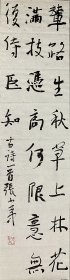 輦路生秋草上林花
滿枝憑高何限意無
復侍臣知
古詩一首張少華